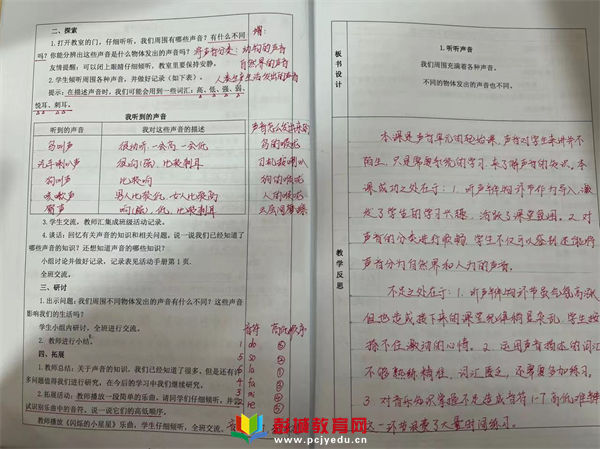 二、探索
1.打开教室的门,仔细听听,我们周围有哪些声音?有什么不同
吗?你能分辨出这些声音是什么物体发出的声音吗?
友情提醒:可以闭上眼睛仔细倾听,教室里要保持安静。
2.学生倾听周围各种声音,并做好记录(如下表)。
提示:在描述声音时,我们可能会用到一些词汇:高、低、强、弱、
悦耳、刺耳。
增:
将声音分类:动物的声音
自然界的声音
人类生产生活发出的声音
我听到的声音
听到的声音 我对这些声音的描述 声音怎么发出来的
鸟叫声 很动听 一会高一会低 鸟的喉咙
汽车喇叭声 很响(强)、比较刺耳 司机按喇叭
狗叫声 比较响 狗的喉咙
咳嗽声 男人比较低,女人比较高 人的喉咙
雷声 响(强)、低、比较刺耳
3.学生交流,教师汇集成班级活动记录。
4.谈话:回忆有关声音的知识和相关问题,说一说我们已经知道了
哪些声音的知识?还想知道声音的哪些知识?
小组讨论并做好记录,记录表见活动手册第1页。
全班交流。
三、研讨
1.出示问题:我们周围不同物体发出的声音有什么不同?这些声音
影响我们的生活吗?
学生小组内研讨,全班进行交流。
2.教师进行小结。
四、拓展
1.教师总结:关于声音的知识,我们已经知道了很多,但是还有许
多问题值得我们进行研究,在今后的学习中我们继续研究。
2.拓展活动:教师播放一段简单的乐曲,请同学们仔细倾听,并尝
试识别乐曲中的音符,说一说它们的高低顺序。
教师播放《闪烁的小星星》乐曲,学生仔细倾听、全班交流、
音符 高低顺序
1 do
5 so
6 la
4 fa
3 mi
2 re
板书设计
1.听听声音
我们周围充满着各种声音。
不同的物体发出的声音也不同。
教学反思
本课是声音单元的起始课,声音对学生来讲并不
陌生,只是需要系统的学习,来了解声音的知识。本
课成功之处在于:1.听声音猜物环节作为导入,激
发了学生的学习兴趣,活跃了课堂氛围。2.对
声音的分类进行归纳,学生不仅可以鉴别还能将
声音分为自然界和人为的声音。
不足之处在于:1.听声音猜物环节虽气氛高涨
但也造成接下来的课堂纪律稍显杂乱,学生按
捺不住激动的心情。2.运用声音描述的词汇
不够熟练精准,词汇匮乏,还需要多加练习。
3.对音乐知识掌握不足造成音符1-7高低难辨
这一环节浪费了大量时间练习。
彭城教育网
www.pcjyedu.cn